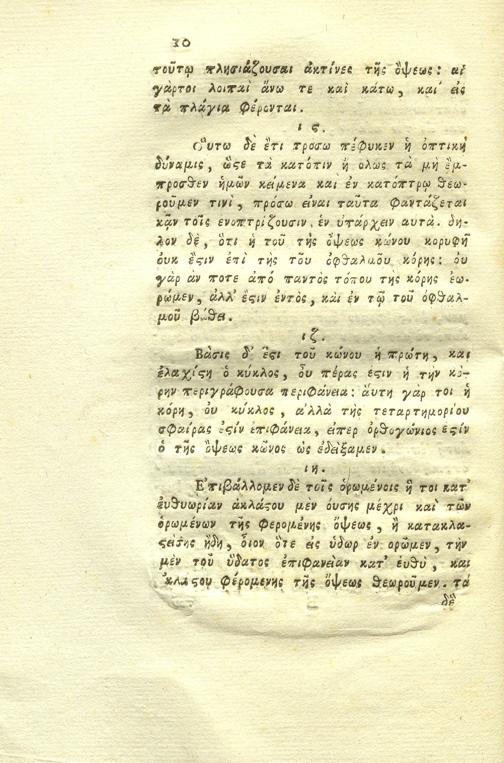 10
τοῦτῳ πλησιάζουσαι ἀκτίνες τῆς ὄψεως: αἱ
γάρτοι λοιπαὶ ἄνω τε καὶ κάτω, καὶ εἰς
τὰ πλάγια φέρονται.
ις.
Οὕτω δὲ ἔτι τροσω πέφυκεν ἡ ὀπτικὴ
δύναμις, ὥςε τὰ κατόπιν ἢ ολως τὰ μὴ ἔμ-
προσθεν ἡμῶν κείμενα και ἐν κατόπτρῳ θεω-
ροῦμεν τινὶ, πρόσω εἶναι ταῦτα φαντάζεται
κᾂν τοῖς ενοπτρίζουσιν ἐν ὑπάρχειν αυτὰ. δη-
λον δὲ, ὅτι ἡ τοῦ τῆς ὄψεως κώνου κορυφὴ
ουκ ἔςιν ἐπὶ τῆς τοῦ οφθαλμοῦ κόρης: ου
γὰρ ἀν ποτε ἀπὸ παντὸς τόπου τῆς κόρης ἑω-
ρῶμεν, ἀλλ' ἐςιν ἐντὸς, καὶ ἐν τῷ τοῦ ὀφθαλ-
μοῦ βάθει.
ιζ.
Βάσις δ' ἔςι τοῦ κώνου ἡ πρώτη, και
ἐλαχίςη ὁ κύκλος, οὗ πέρας ἐςιν ἡ την κό-
ρην περιγράφουσα περιφάνεια: ἅυτη γάρ τοι ἡ
κόρη, ου κύκλος, ἀλλὰ τῆς τεταρτημορίου
σφαίρας ἐςὶν ἐπιφάνεια, εἰπερ ὀρθογώνιος ἐςὶν
ὁ τῆς ὄψεως κῶνος ὡς ἐδείξαμεν.
ιη.
Ε'πιβάλλομεν δὲ τοῖς ὁρωμένοις ἤ τοι κατ'
ἐυθυωρίαν ἀκλάςου μὲν ὀυσης μέχρι καὶ τῶν
ὁρωμένων τῆς φερομένης ὄψεως, ἢ κατακλα-
ςείσης ἤδη, ὅιον ὅτε εἰς ὕδωρ ἐν ορῶμεν, τὴν
μὲν τοῦ ὕδατος ἐπιφανείαν κατ' ἐυθὺ, και
ἀκλάςου φέρομενης τῆς ὄψεως θεωροῦμεν. τά
δὲ